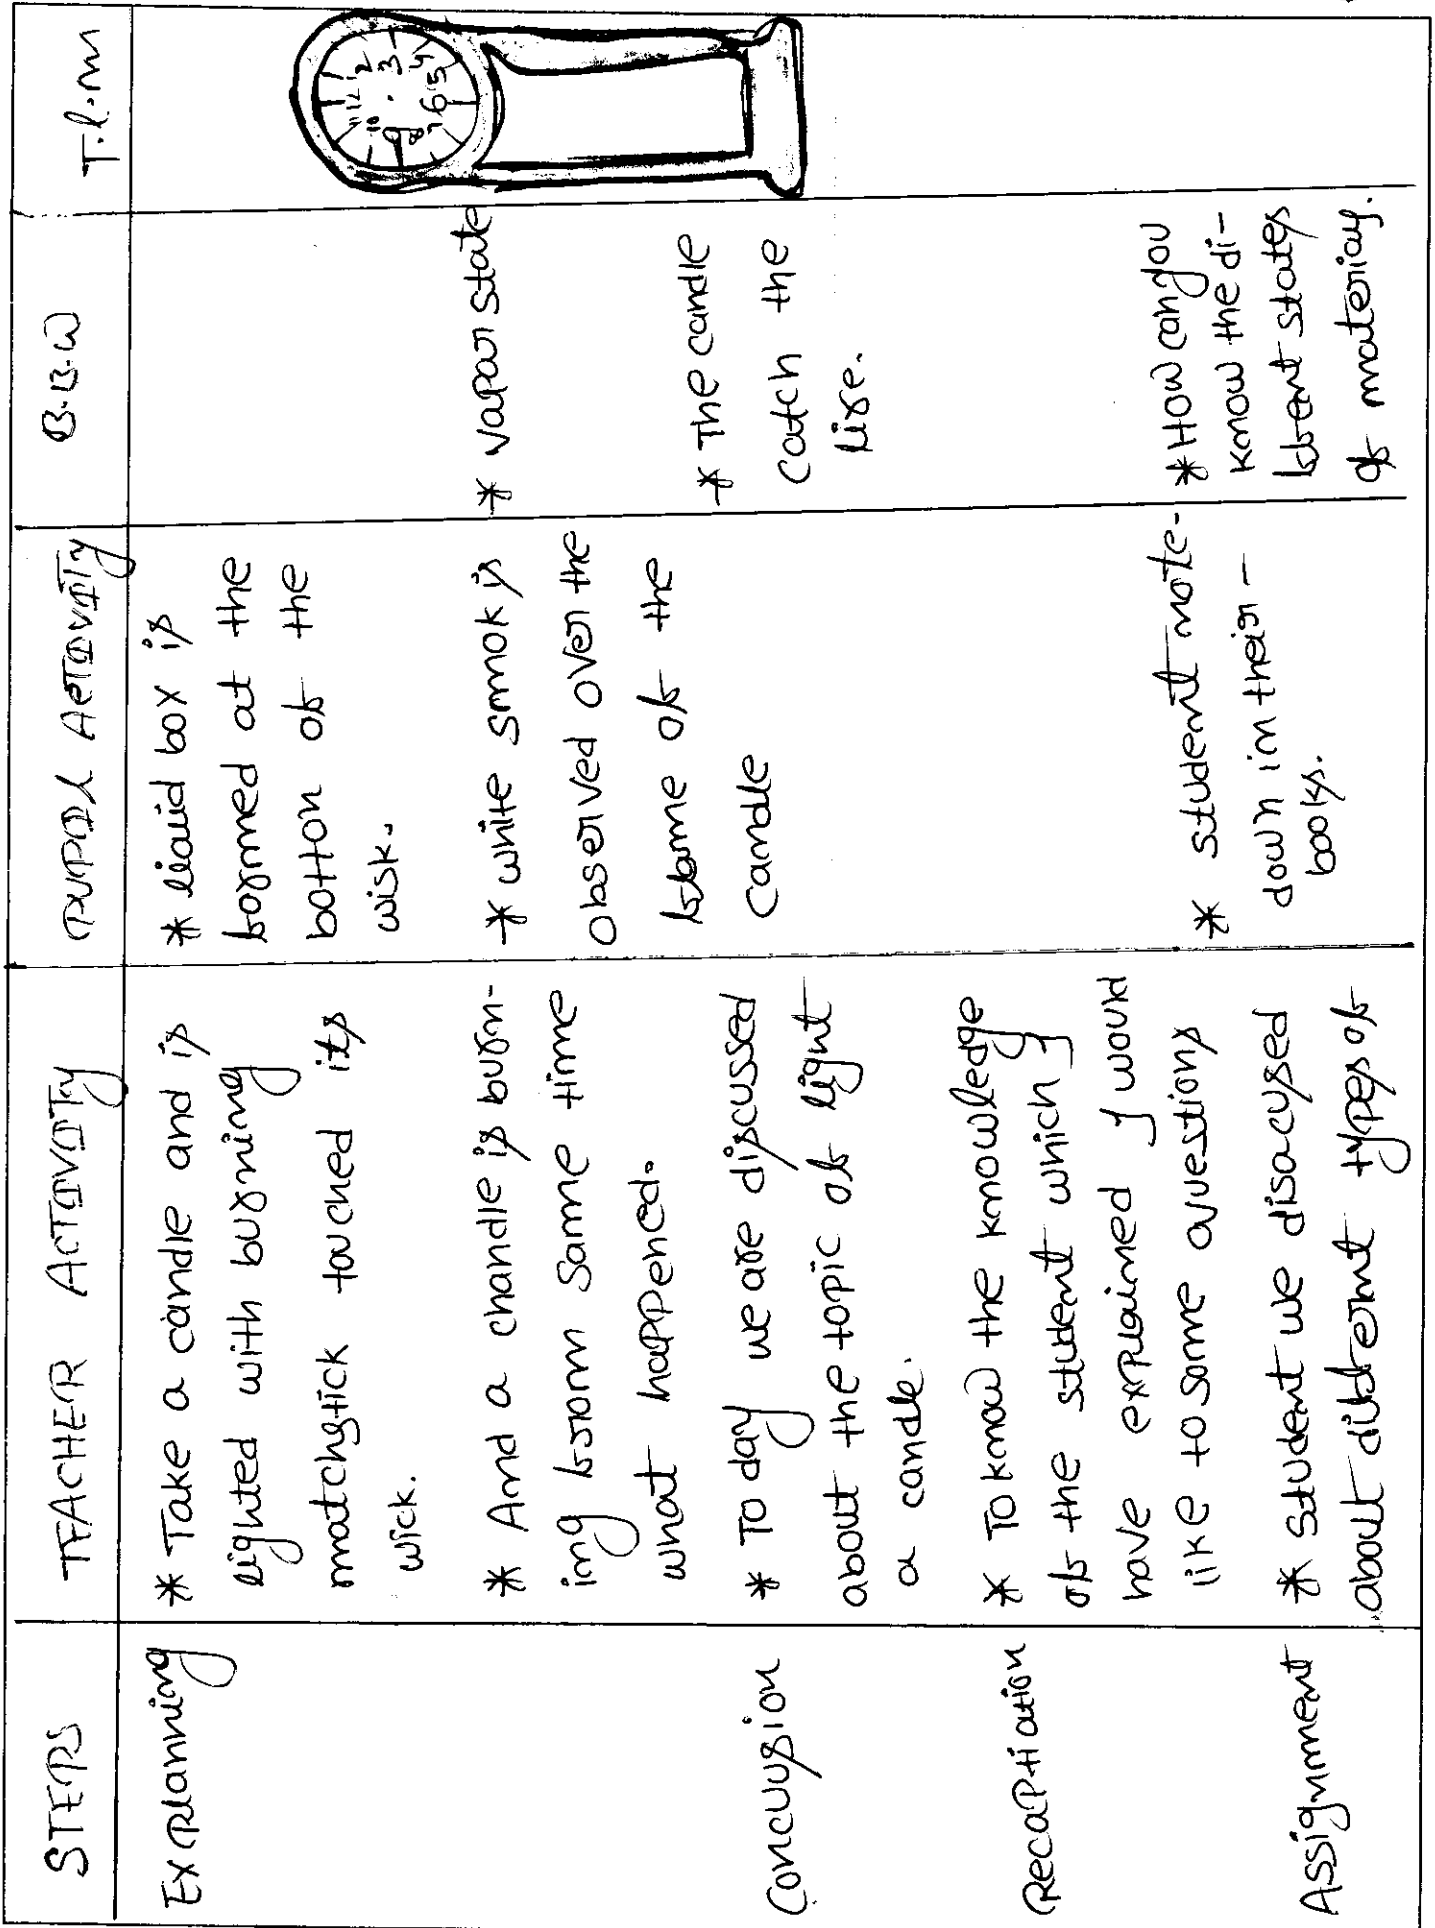 STEPS
TEACHER ACTIVITY
PUPIL ACTIVITY
B.B.W
T.l.m
Explanning
* Take a candle and is
lighted with burning
matchstick touched its
wick.
* liquid box is
formed at the
botton of the
wisk.
* And a chandle is burn-
ing from same time
what happened.
* white smok is
observed over the
flame of the
candle
* vapour state
Concusion
* To day we are discussed
about the topic of light
a candle.
* The candle
catch the
fire.
Recaptiation
* To know the knowledge
of the student which I
have explained I would
like to some questions
Assignment
* Student we disacused
about different types of
* student note-
down in their -
books.
* How can you
know the di-
fferent states
of materials.
1
2
3
4
5
6
7
8
9
10
11
12